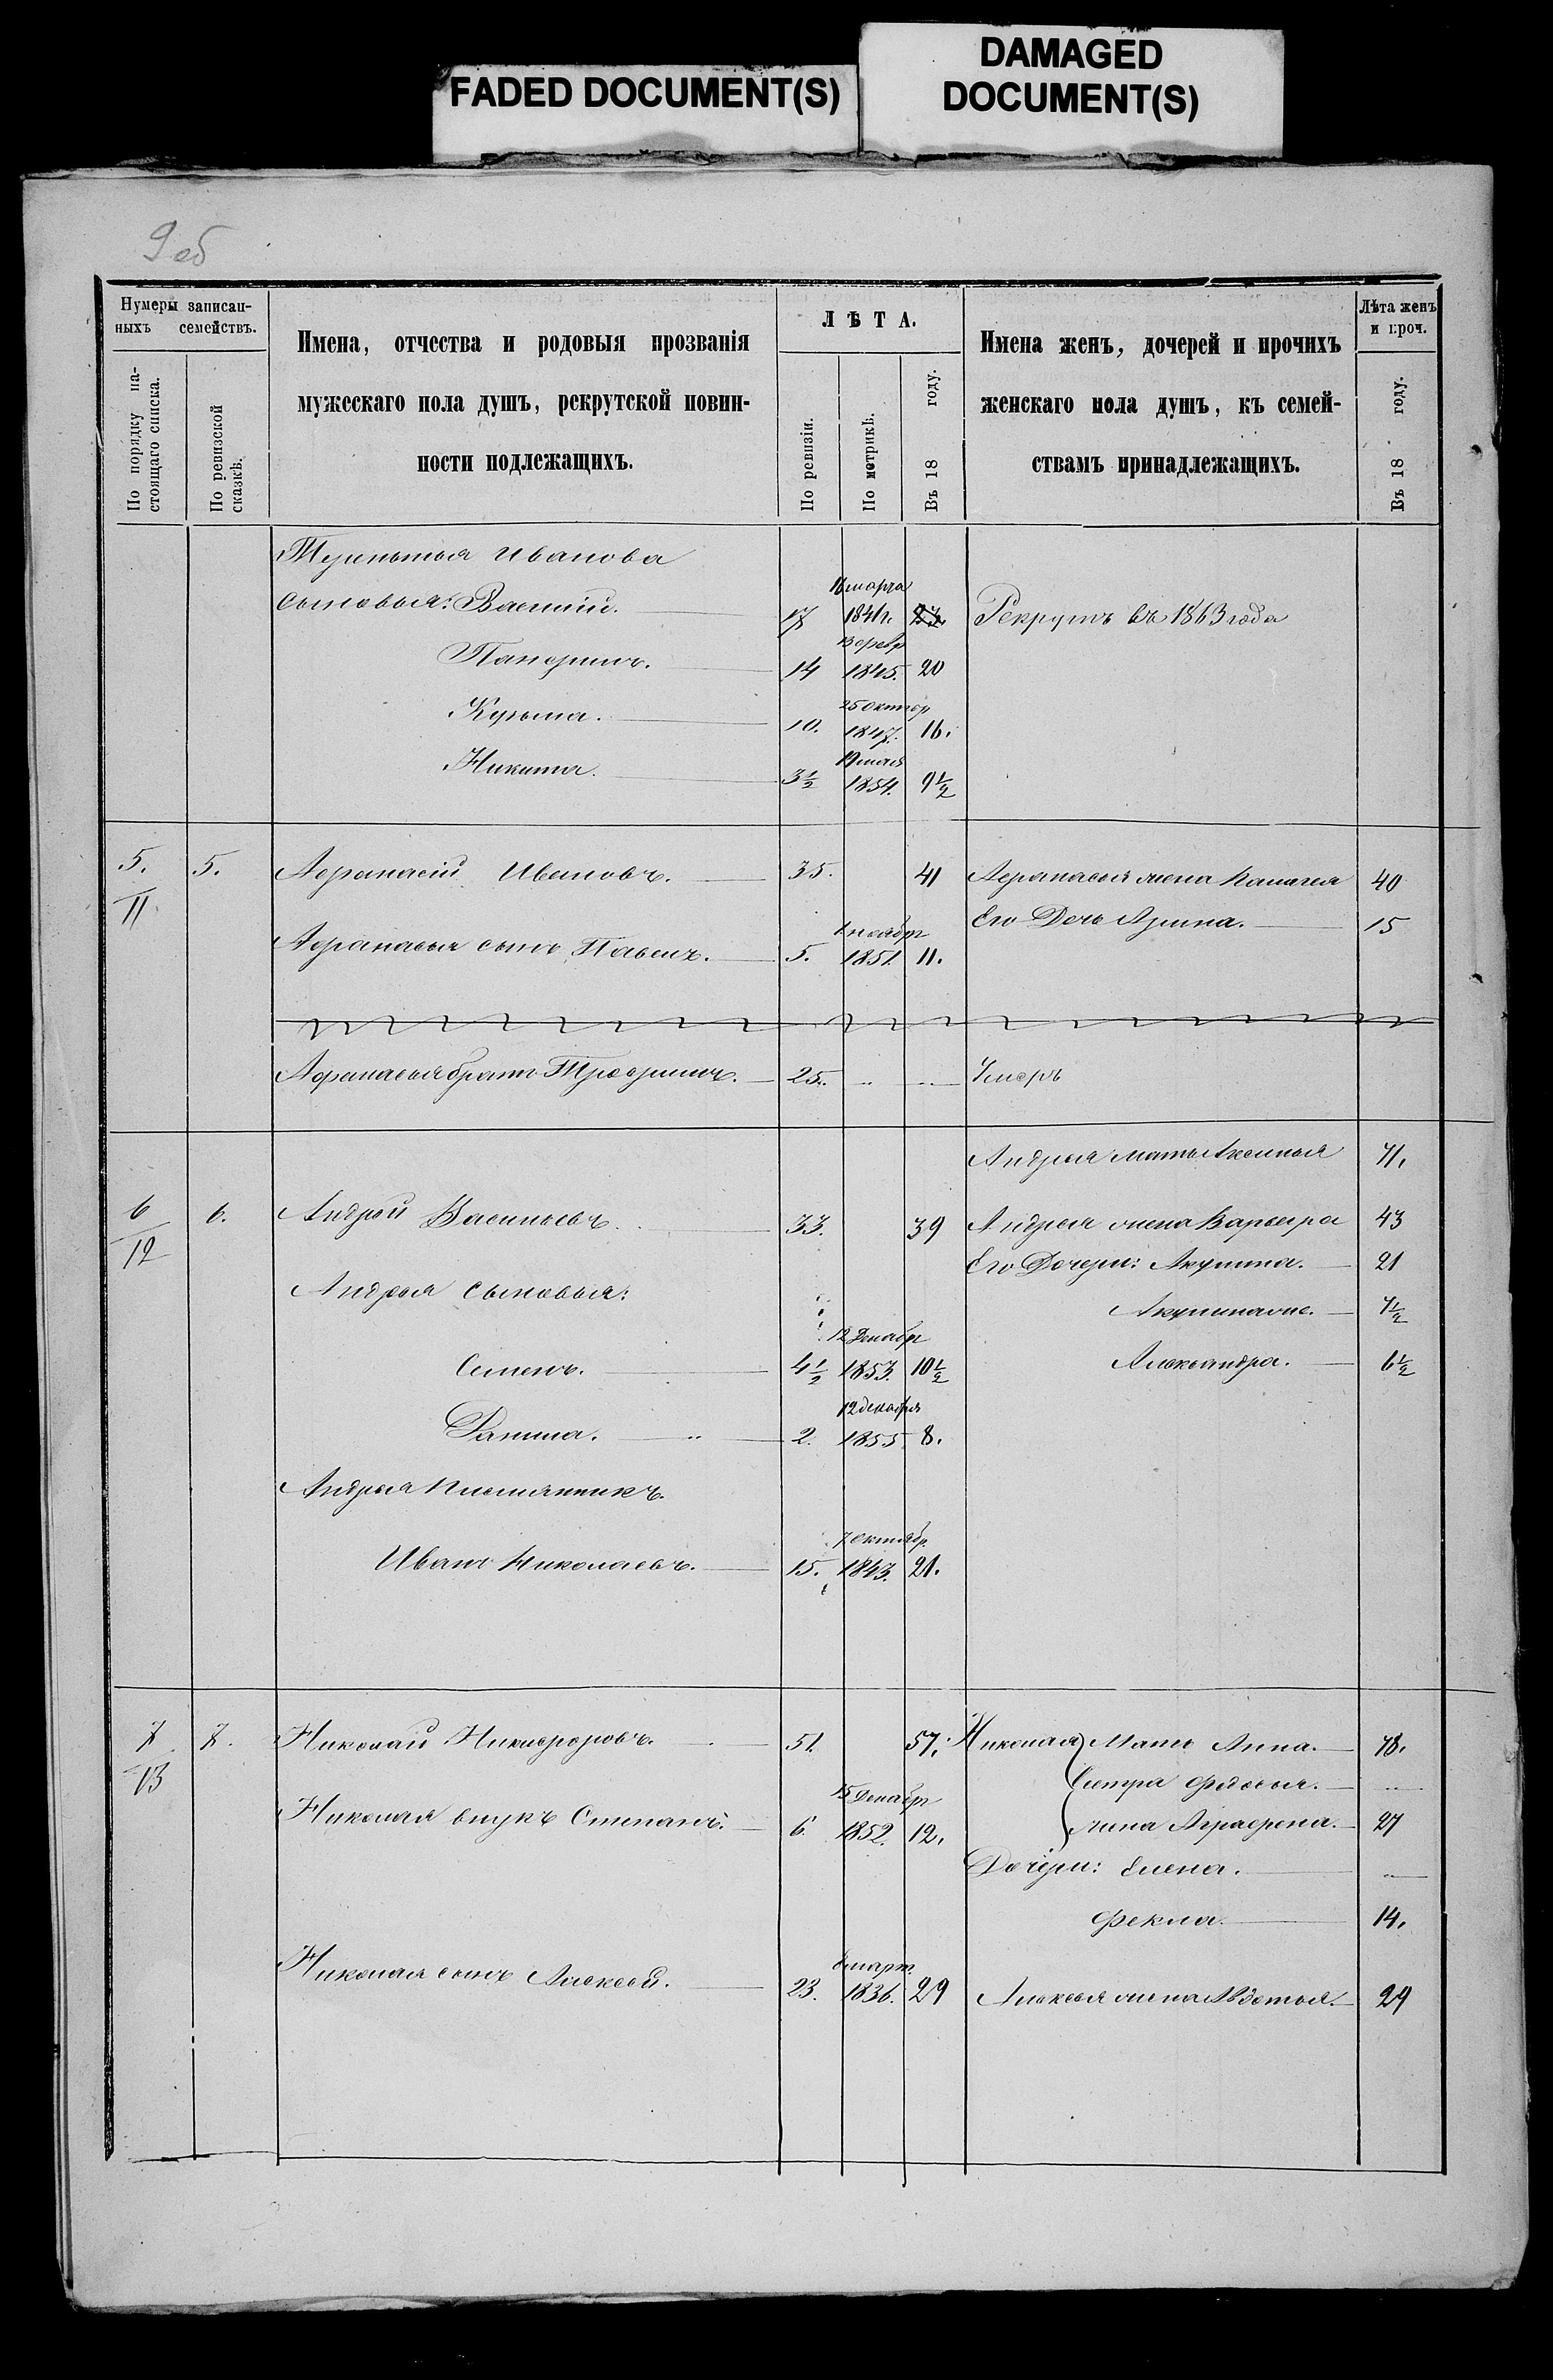 FADED DOCUMENT(S)
DAMAGED
DOCUMENT(S)
9 об
Нумеры записан-
ныхъ семействъ.
По порядку на-
стоящаго списка.
По ревизской
сказкѣ.
Имена, отчества и родовыя прозванія
мужескаго пола душъ, рекрутской повин-
ности подлежащихъ.
ЛѢТА.
По ревизіи.
По метрикѣ.
Въ 18 году.
Имена женъ, дочерей и прочихъ
женскаго пола душъ, къ семей-
ствамъ принадлежащихъ.
Лѣта женъ
и проч.
Въ 18 году.
Иванова
сыновья: Василій. 17 1841г. 23. Рекрутъ въ 1863 года
Панфилъ. 14 1845. 20
25 Октяб
Кузьма. 10. 1847. 16.
19 мая
Никита. 3½ 1854. 9½
5. 5. Афанасій Ивановъ. 35. 41 Афанасья жена Палагея 40
11 Его Дочь Арина. 15
1 ноября
Афанасья сынъ Павелъ. 5. 1851. 11.
Афанасья братъ Трофимъ. 25. Умеръ
Андрея мать Аксинья 71.
6 6. Андрей Васильевъ. 33. 39 Андрея жена Варвара 43
12 Его Дочери: Акулина. 21
Андрея сыновья:
Акулина же. 7½
12 Декабр
Семенъ. 4½ 1853. 10½ Александра. 6½
12 декабря
Данила. 2. 1855 8.
Андрея племянникъ.
7 октябр.
Иванъ Николаевъ. 15. 1843. 21.
7 7. Николай Никифоровъ. 51. 57. Николая Мать Анна. 78.
13 Сестра Федосья.
15 Декабр
Николая внукъ Степанъ. 6. 1852. 12. жена Аграфена. 27
Дочери: Елена.
Фекла. 14.
март.
Николая сынъ Алексей. 23. 1836. 29 Алексея жена Авдотья. 29